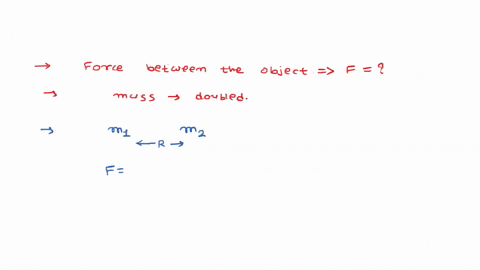 → Force between the object => F = ?
→ muss → doubled.
→ m1 m2
←R→
F=